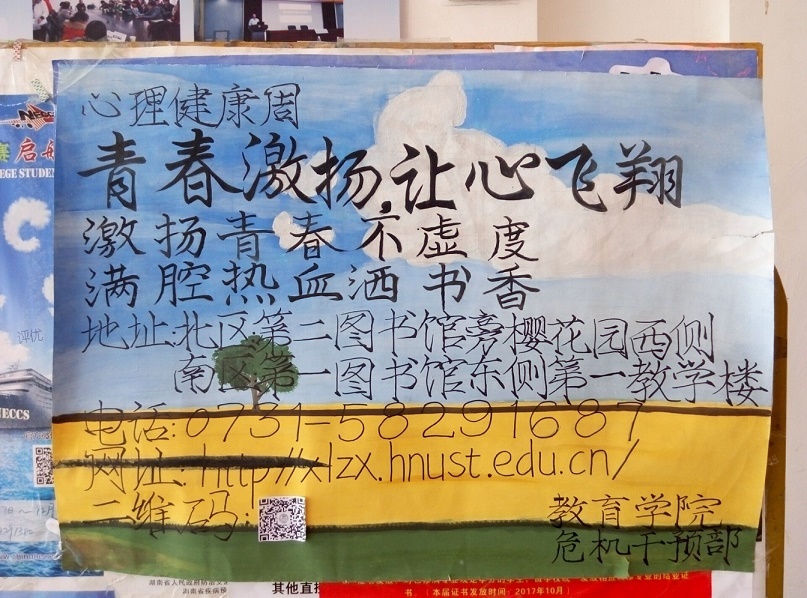 心理健康周
青春激扬,让心飞翔
激扬青春不虚度
满腔热血洒书香
地址:北区:第二图书馆旁樱花园西侧
南区:第一图书馆东侧第一教学楼
电话:0731-58291687
网址:http://xlzx.hnust.edu.cn/
二维码:
教育学院
危机干预部
启航
EGE STUDEN
评优
NECCS
湖南省人民政府防治艾
湖南省疾病预
其他直接
书。(本届证书发放时间:2017年10月)